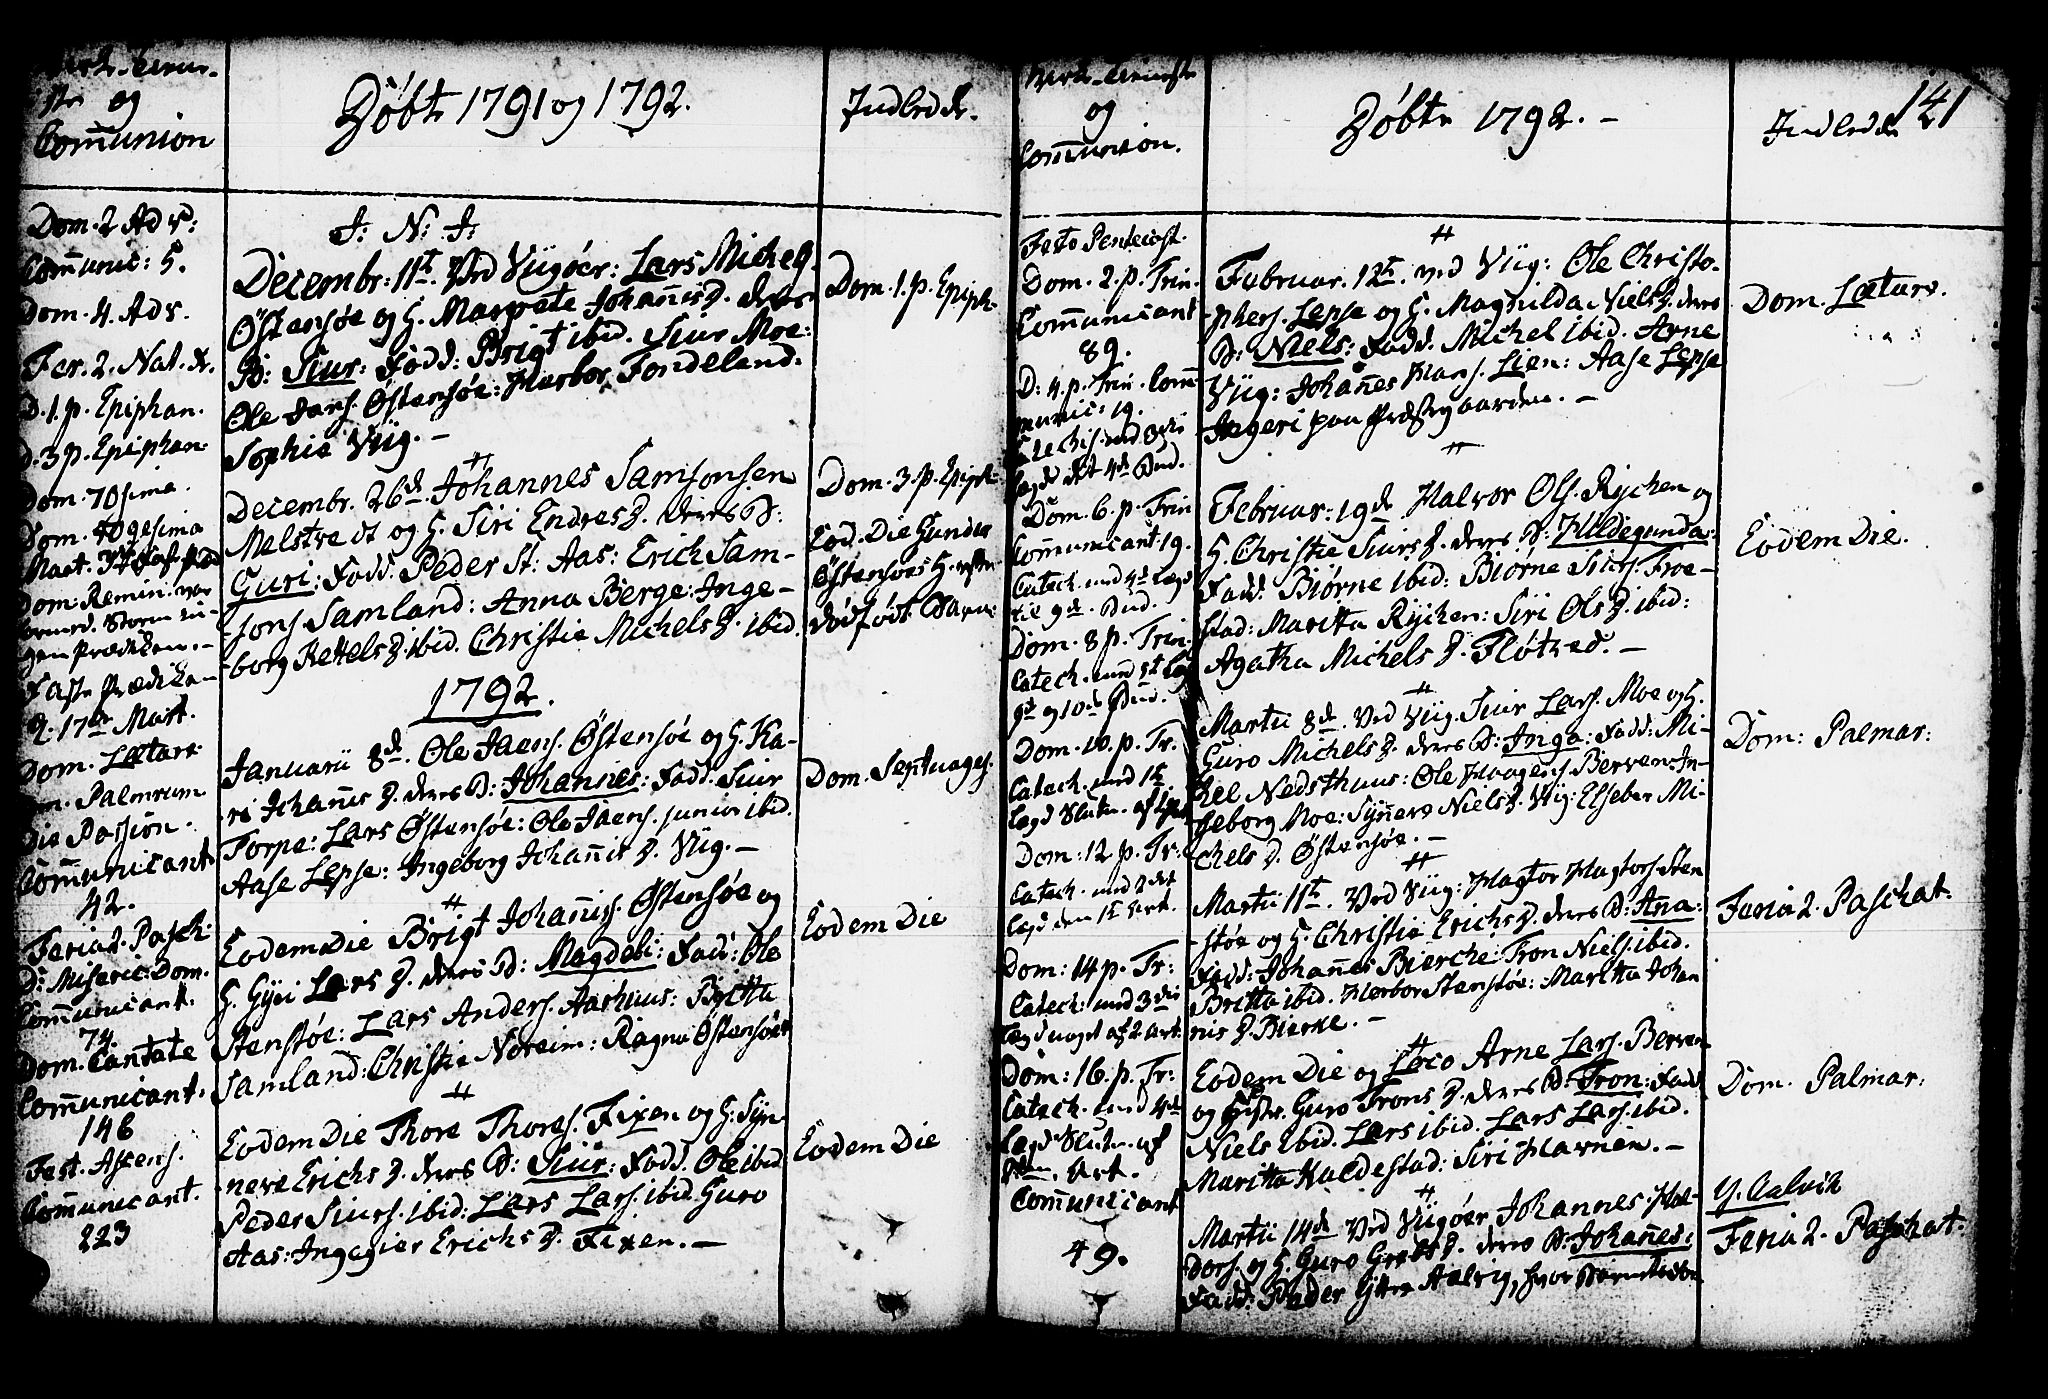 og
Communion
Døbte 1791 og 1792.
Indledde.
Dom. 2 Adv:
Communic: 5.
Dom. 4. Adv.
Fer. 2. Nat. Xr.
D. 1. p. Epiphan.
D. 3 p. Epiphan.
Dom. 70sima.
Dom. Remin. var
gen Prædiken. -
Faste Prædika-
q. 17de Mart.
Dom. Lætare
Dom. Palmrum
Die Passion.
Communicant.
42.
Feria 2. Pasch:
D: Miseric: Dom.
Communicant.
74.
Dom. Cantate
Communicant.
146
Fest. Ascens.
Communicant.
223
J: N: J:
Decembr: 11te. Ved Viigøer: Lars Michels.
Østensøe og H. Margrete Johannis D. deres
B: Siur: Fadd: Brigt ibid. Siur Moe:
Ole Jans. Østensøe: Herbor Fondeland:
Sophia Viig. -
Decembr. 26de Johannes Samsonsen
Melstvedt og H. Siri Endres D. deres B:
Guri: Fadd: Peder St: Aas: Erich Sam-
sons Samland: Anna Berge: Inge-
borg Kettels D. ibid. Christie Michels D. ibid.
1792.
Januarii 8de. Ole Jaens. Østensøe og H. Ka-
ri Johannis D. deres B: Johannes: Fadd. Siur
Torpe: Lars Østensøe: Ole Jaens. junior ibid.
Aase Lepse: Ingeborg Johannis D. Viig. -
Eodem Die Brigt Johanniss. Østensøe og
H. Gyri Lars D. deres B: Magdeli: Fadd: Ole
Stenstøe: Lars Anders. Aarhuus: Brytta
Samland: Christie Noreim: Ragna Østensøe
Eodem Die Thore Thores. Fixen og H: Syn-
neve Erichs D. deres B: Siur: Fadd. Ole ibid
Peder Siurs. ibid: Lars Lars. ibid. Guro
Aas: Ingegier Erichs D. Fixen. -
Dom. 1. p. Epiph.
Dom. 3. p. Epiph.
Eod. Die Gunder
Østensøes H. efter
dødfødt Barn.
Dom. Septuages.
Eodem Die
Eodem Die
og
Communion.
Døbte 1792. -
Indledde
141
Festo Pentecost.
Dom. 2. p. Trin.
Communicant
89.
D: 4. p. Trin. Com
munic: 19.
Dom. 6. p. Trin
Communicant 19.
Catech. med 4de Lægd
til 9de Bud.
Dom. 8 p. Trin.
Catech. med 5te Læg
9de og 10de Bud.
Dom. 10. p. Tr.
Catech. med 1te
Lægd Sluten. af
Dom: 12 p. Tr:
Catech. med 2det
Lægd den 1te Art.
Dom: 14 p. Tr:
Catech: med 3die
Lægd noget af 2 Art.
Dom: 16. p. Tr:
Catech. med 4de
Lægd Sluten. af
Art.
Communicant
49.
Februar. 12te. ved Viig: Ole Christo-
phers. Lepse og H. Magnilda Niels D. deres
B: Niels: Fadd. Michel ibid. Arne
Viig: Johannes Hans. Lien: Aase Lepse
Ingeri paa Præstegaarden. -
Februar: 19de Halvor Ols. Rychen og
H. Christie Siurs D. deres B: Hildegunda:
Fadd: Biørne ibid: Biørne Siurs. Froe-
stad: Maritta Rychen: Siri Ols D. ibid:
Agatha Michels D. Fløtved. -
Martii 8de. Ved Viig. Siur Lars. Moe og H.
Guro Michels D. deres B: Inga: Fadd: Mi-
chel Nedsthuus: Ole Haagens. Berven: In-
geborg Moe: Synneve Niels D. Viig: Elseber Mi-
chels D. Østensøe. -
Martii 11te. Ved Viig: Hagtor Hagtors. Sten
støe og H. Christie Erichs D. deres B: Anna:
Fadd: Johannes Bierche: Tron Niels. ibid.
Britta ibid. Herbor Stenstøe: Maritta Johan
nis D. Bierke. -
Eodem Die og Loco Arne Lars. Berven
og Hustr. Guro Trons D. deres B: Tron: Fadd
Niels ibid. Lars ibid. Lars Lars. ibid.
Maritta Haldestad: Siri Havnen. -
Martii 14de Ved Viigøer Johannes Hal-
dors. og H. Guro D. deres B: Johannes:
Fadd: Peder Ytre Aalvig, hvor
Dom. Lætare.
Eodem Die.
Dom: Palmar:
Feria 2. Paschat.
Dom. Palmar:
Y. Aalvik
Feria 2. Paschat.